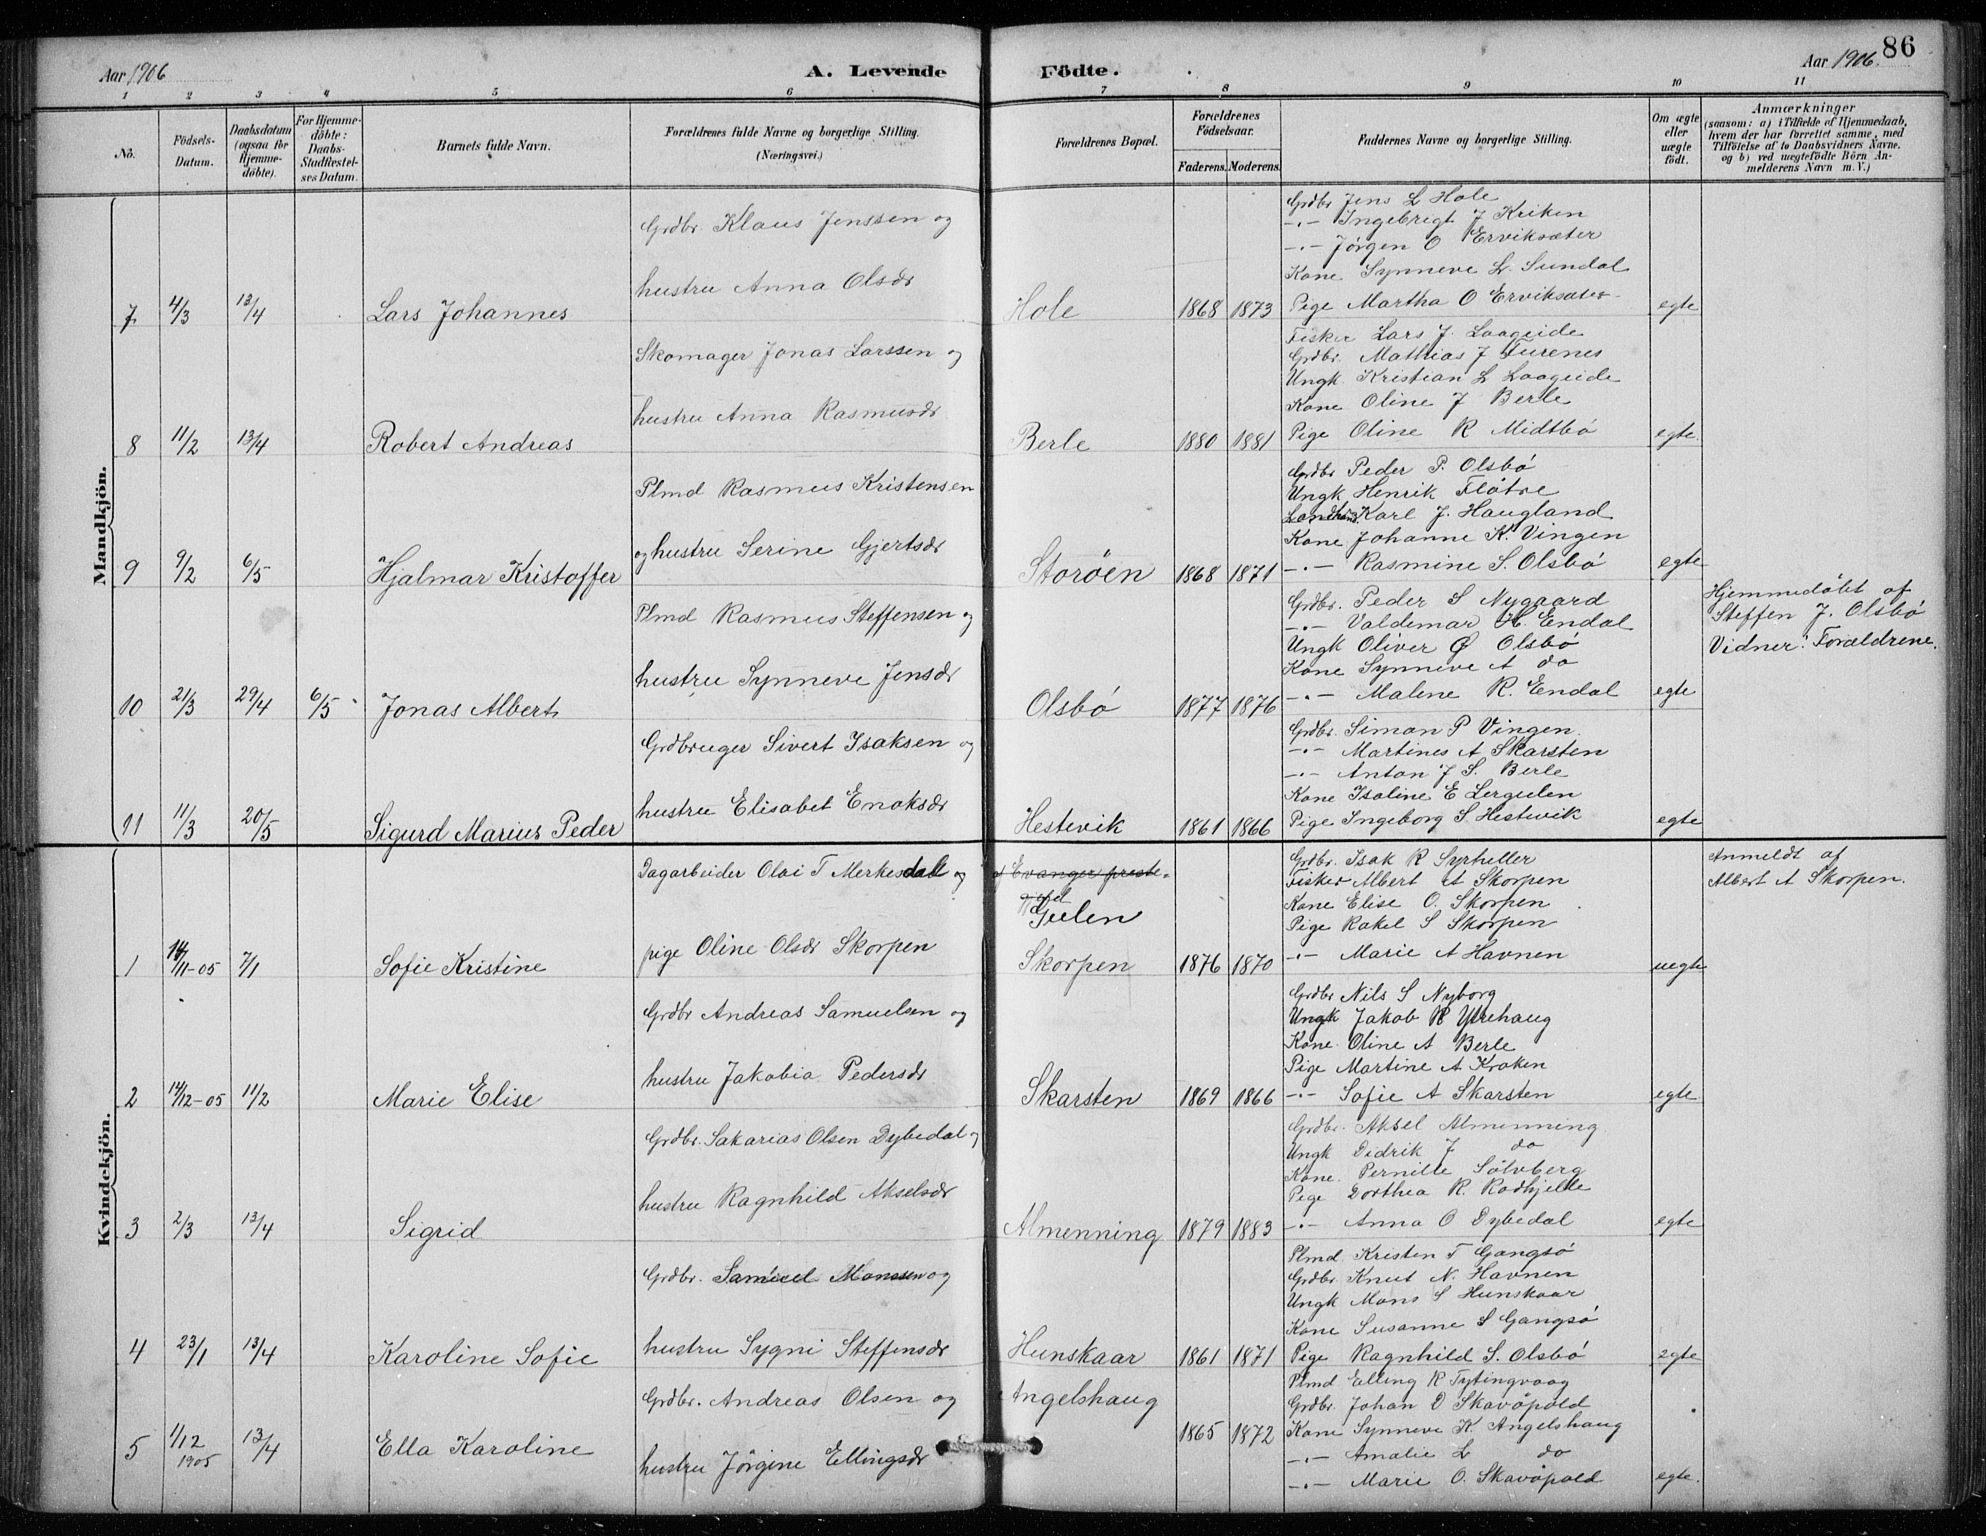 86
Aar 1906
A. Levende
Födte.
Aar 1906.
1 2 3 4 5 6 7 8 9 10 11
No.
Födsels-
Datum.
Daabsdatum
(ogsaa for
Hjemme-
döbte).
For Hjemme-
döbte:
Daabs-
Stadfæstel-
ses Datum.
Barnets fulde Navn.
Forældrenes fulde Navne og borgerlige Stilling.
(Næringsvei.)
Forældrenes Bopæl.
Forældrenes
Födselsaar.
Faderens. Moderens.
Faddernes Navne og borgerlige Stilling.
Om ægte
eller
uægte
födt.
Anmærkninger
(saasom: a) i Tilfælde af Hjemmedaab,
hvem der har forrettet samme, med
Tilföielse af to Daabsvidners Navne.
og b) ved uægtefödte Börn An-
melderens Navn m. V.)
Mandkjön.
7 4/3 13/4 Lars Johannes
Grdbr. Klaus Jenssen og
hustru Anna Olsdr
Hole 1868 1873
Grdbr Jens L Hole
-"- Ingebrigt J Kriken
-"- Jørgen O Erviksæter
Kone Synneve L. Sundal
Pige Martha O Erviksæter
egte
8 11/2 13/4 Robert Andreas
Skomager Jonas Larssen og
hustru Anna Rasmusdr
Berle 1880 1881
Fisker Lars J. Laageide
Grdbr. Mathias J Furenes
Ungk Kristian L Laageide
Kone Oline J Berle
Pige Oline R Midtbö
egte.
9 9/2 6/5 Hjalmar Kristoffer
Plmd Rasmus Kristensen
og hustru Serine Gjertsdr
Storöen 1868 1871
Grdbr Peder P. Olsbö
Ungk Henrik Flötre
Landhdl. Karl J. Haugland
Kone Johanne K. Vingen
-"- Rasmine S. Olsbö
egte
10 21/3 29/4 6/5 Jonas Albert
Plmd Rasmus Steffensen og
hustru Synneve Jensdr
Olsbö 1877 1876
Grdbr. Peder S Nygaard
-"- Valdemar H. Endal
Ungk Oliver Ø Olsbö
Kone Synneve A do
-"- Malene R. Endal
egte
Hjemmedöbt af
Steffen J. Olsbö
Vidner: Forældrene.
11 11/3 20/5 Sigurd Marius Peder
Grdbruger Sivert Isaksen og
hustru Elisabet Enoksdr
Hestevik 1861 1866
Grdbr. Simon P Vingen.
-"- Martines A Skarsten
-"- Anton J S. Berle
Kone Isaline E Lergulen
Pige Ingeborg S. Hestevik
egte
Kvindekjön.
1 14/11-05 7/1 Sofie Kristine
Dagarbeider Olai T Merkesdal og
pige Oline Olsdr Skorpen
af Evanger præste-
gjeld
Gulen
Skorpen 1876 1870
Grdbr. Isak R Sörheller
Fisker Albert A Skorpen
Kone Elise O. Skorpen
Pige Rakel S Skorpen
-"- Marie A Havnen
uegte
Anmeldt af
Albert A Skorpen.
2 14/12-05 11/2 Marie Elise
Grdbr Andreas Samuelsen og
hustru Jakobia Pedersdr
Skarsten 1869 1866
Grdbr Nils S Nyborg
Ungk Jakob R Ytrehaug
Kone Oline A Berle
Pige Martine A Kroken
-"- Sofie A Skarsten
egte
3 2/3 13/4 Sigrid
Grdbr. Sakarias Olsen Dybedal og
hustru Ragnhild Akselsdr
Almenning 1879 1883
Grdbr. Aksel Almenning
Ungk Didrik J do
Kone Pernille Sölvberg
Pige Dorthea R. Rödhjelle
-"- Anna O Dybedal
egte
4 23/1 13/4 Karoline Sofie
Grdbr. Samuel Monssen og
hustru Sygni Steffensdr
Hunskaar 1861 1871
Plmd Kristen T Gangsö
Grdbr. Knut N. Havnen
Ungk Mons S Hunskaar
Kone Susanne S Gangsö
Pige Ragnhild S. Olsbö
egte
5 1/12 1905 13/4 Ella Karoline
Grdbr. Andreas Olsen og
hustru Jörgine Ellingsdr
Angelshaug 1865 1872
Plmd Elling R Tytingvaag
Grdbr. Johan D Skavöpold
Kone Synneve K. Angelshaug
-"- Amalie L do
-"- Marie O. Skavöpold
egte.